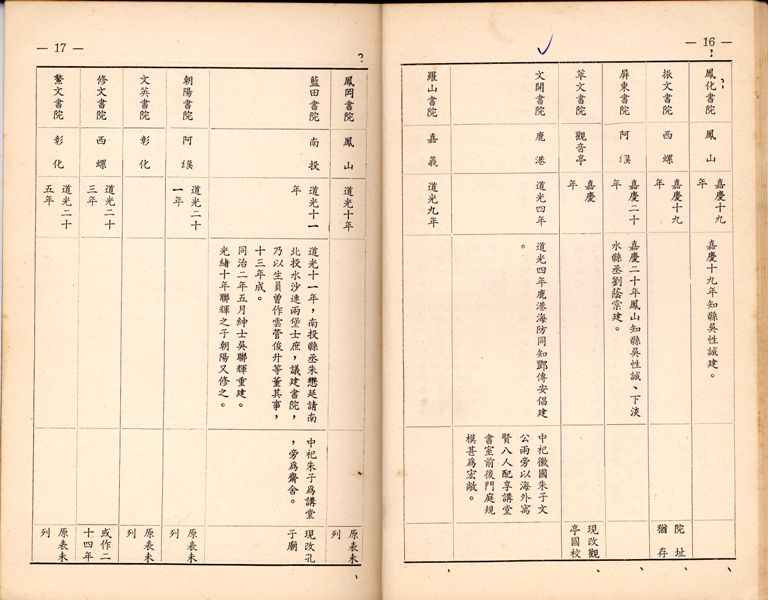 — 16 —
鳳化書院
鳳山
嘉慶十九
年
嘉慶十九年知縣吳性誠建。
振文書院
西螺
嘉慶十九
年
院址
猶存
屏東書院
阿緱
嘉慶二十
年
嘉慶二十年鳳山知縣吳性誠、下淡
水縣丞劉蔭棠建。
萃文書院
觀音亭
嘉慶
年
現改觀
亭國校
文開書院
鹿港
道光四年
道光四年鹿港海防同知鄧傳安倡建
。
中祀徽國朱子文
公兩旁以海外寓
賢八人配享講堂
書室前後門庭規
模甚爲宏敞。
羅山書院
嘉義
道光九年
— 17 —
鳳岡書院
鳳山
道光十年
原表未
列
藍田書院
南投
道光十一
年
道光十一年，南投縣丞朱懋延請南
北投水沙連兩堡士庶，議建書院，
乃以生員曾作雲管俊升等董其事，
十三年成。
同治二年五月紳士吳聯輝重建。
光緒十年聯輝之子朝陽又修之。
中祀朱子爲講堂
，旁爲齋舍。
現改孔
子廟
朝陽書院
阿緱
道光二十
一年
原表未
列
文英書院
彰化
原表未
列
修文書院
西螺
道光二十
三年
或作二
十四年
鰲文書院
彰化
道光二十
五年
原表未
列